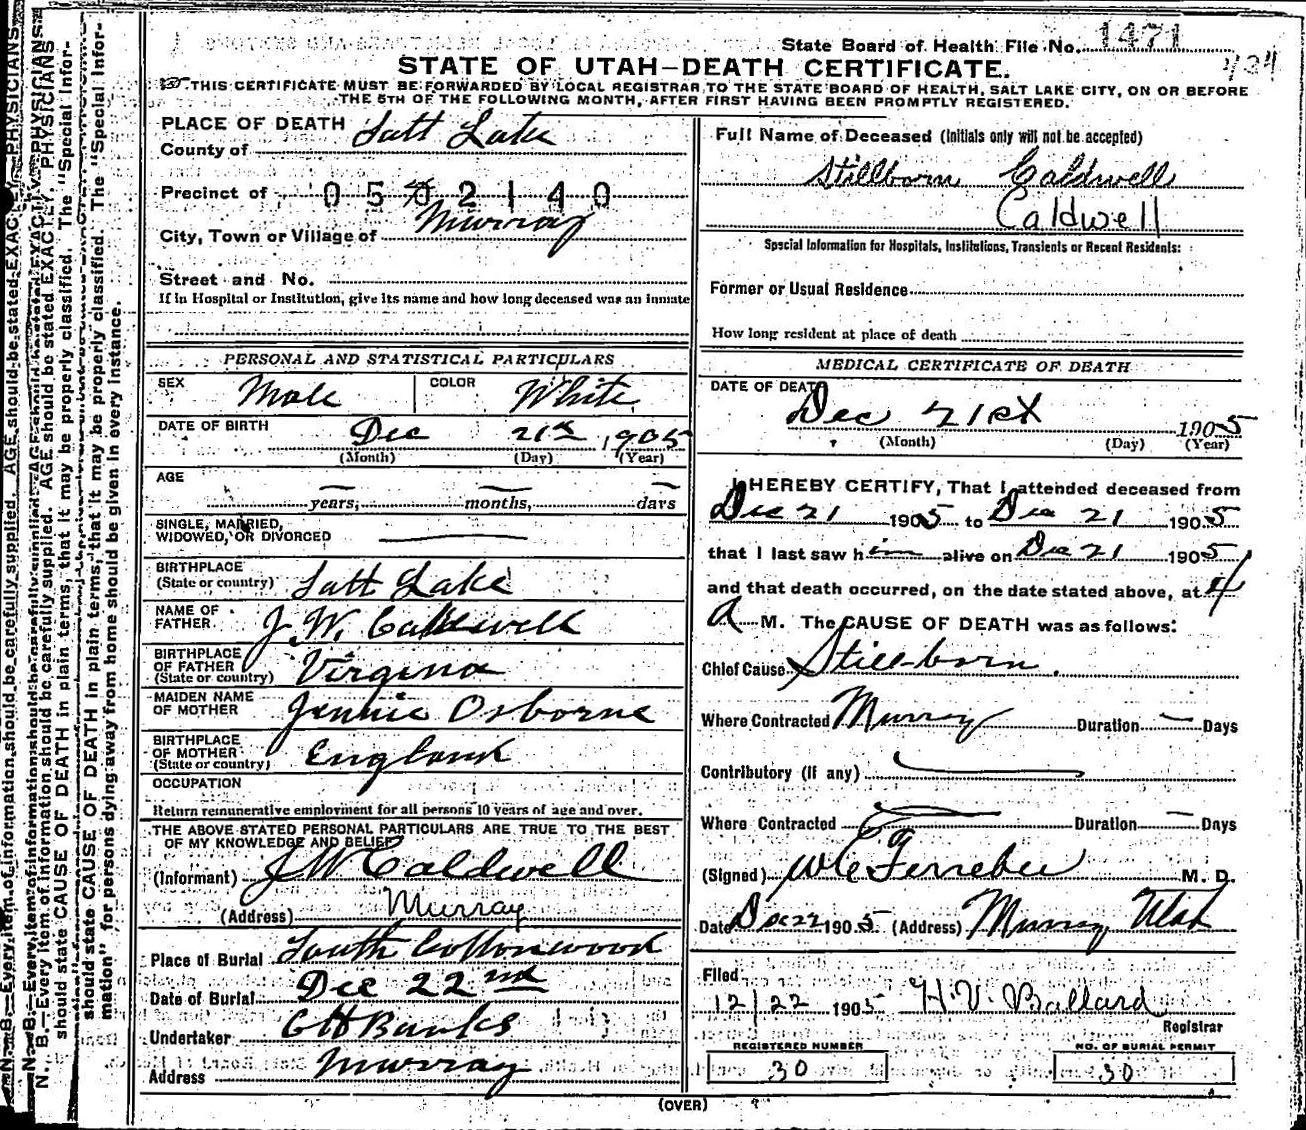 State Board of Health File No. 1471
434
STATE OF UTAH—DEATH CERTIFICATE.
THIS CERTIFICATE MUST BE FORWARDED BY LOCAL REGISTRAR TO THE STATE BOARD OF HEALTH, SALT LAKE CITY, ON OR BEFORE
THE 5TH OF THE FOLLOWING MONTH, AFTER FIRST HAVING BEEN PROMPTLY REGISTERED.
PLACE OF DEATH
County of Salt Lake
Precinct of 0502140
City, Town or Village of Murray
Street and No.
If in Hospital or Institution, give its name and how long deceased was an inmate
PERSONAL AND STATISTICAL PARTICULARS
SEX Male COLOR White
DATE OF BIRTH Dec 21st 1905
(Month) (Day) (Year)
AGE
years, months, days
SINGLE, MARRIED,
WIDOWED, OR DIVORCED
BIRTHPLACE
(State or country) Salt Lake
NAME OF
FATHER J. W. Caldwell
BIRTHPLACE
OF FATHER
(State or country) Virgina
MAIDEN NAME
OF MOTHER Jennie Osborne
BIRTHPLACE
OF MOTHER
(State or country) England
OCCUPATION
Return remunerative employment for all persons 10 years of age and over.
THE ABOVE STATED PERSONAL PARTICULARS ARE TRUE TO THE BEST
OF MY KNOWLEDGE AND BELIEF
(Informant) J W Caldwell
(Address) Murray
Place of Burial South Cottonwood
Date of Burial Dec 22nd
Undertaker Banks
Address Murray
Full Name of Deceased (Initials only will not be accepted)
Stillborn Caldwell
Caldwell
Special Information for Hospitals, Institutions, Transients or Recent Residents:
Former or Usual Residence
How long resident at place of death
MEDICAL CERTIFICATE OF DEATH
DATE OF DEATH
Dec 21st 1905
(Month) (Day) (Year)
I HEREBY CERTIFY, That I attended deceased from
Dec 21 1905 to Dec 21 1905
that I last saw him alive on Dec 21 1905
and that death occurred, on the date stated above, at 4
A M. The CAUSE OF DEATH was as follows:
Chief Cause Still-born
Where Contracted Murray Duration — Days
Contributory (if any)
Where Contracted Duration — Days
(Signed) Ferrebee M. D.
Date Dec 22 1905 (Address) Murray Utah
Filed
12/22 1905 H. V. Ballard
Registrar
REGISTERED NUMBER
30
NO. OF BURIAL PERMIT
30
(OVER)
N. B.—Every item of information should be carefully supplied. AGE should be stated EXACTLY. PHYSICIANS
should state CAUSE OF DEATH in plain terms, that it may be properly classified. The "Special Infor-
mation" for persons dying away from home should be given in every instance.